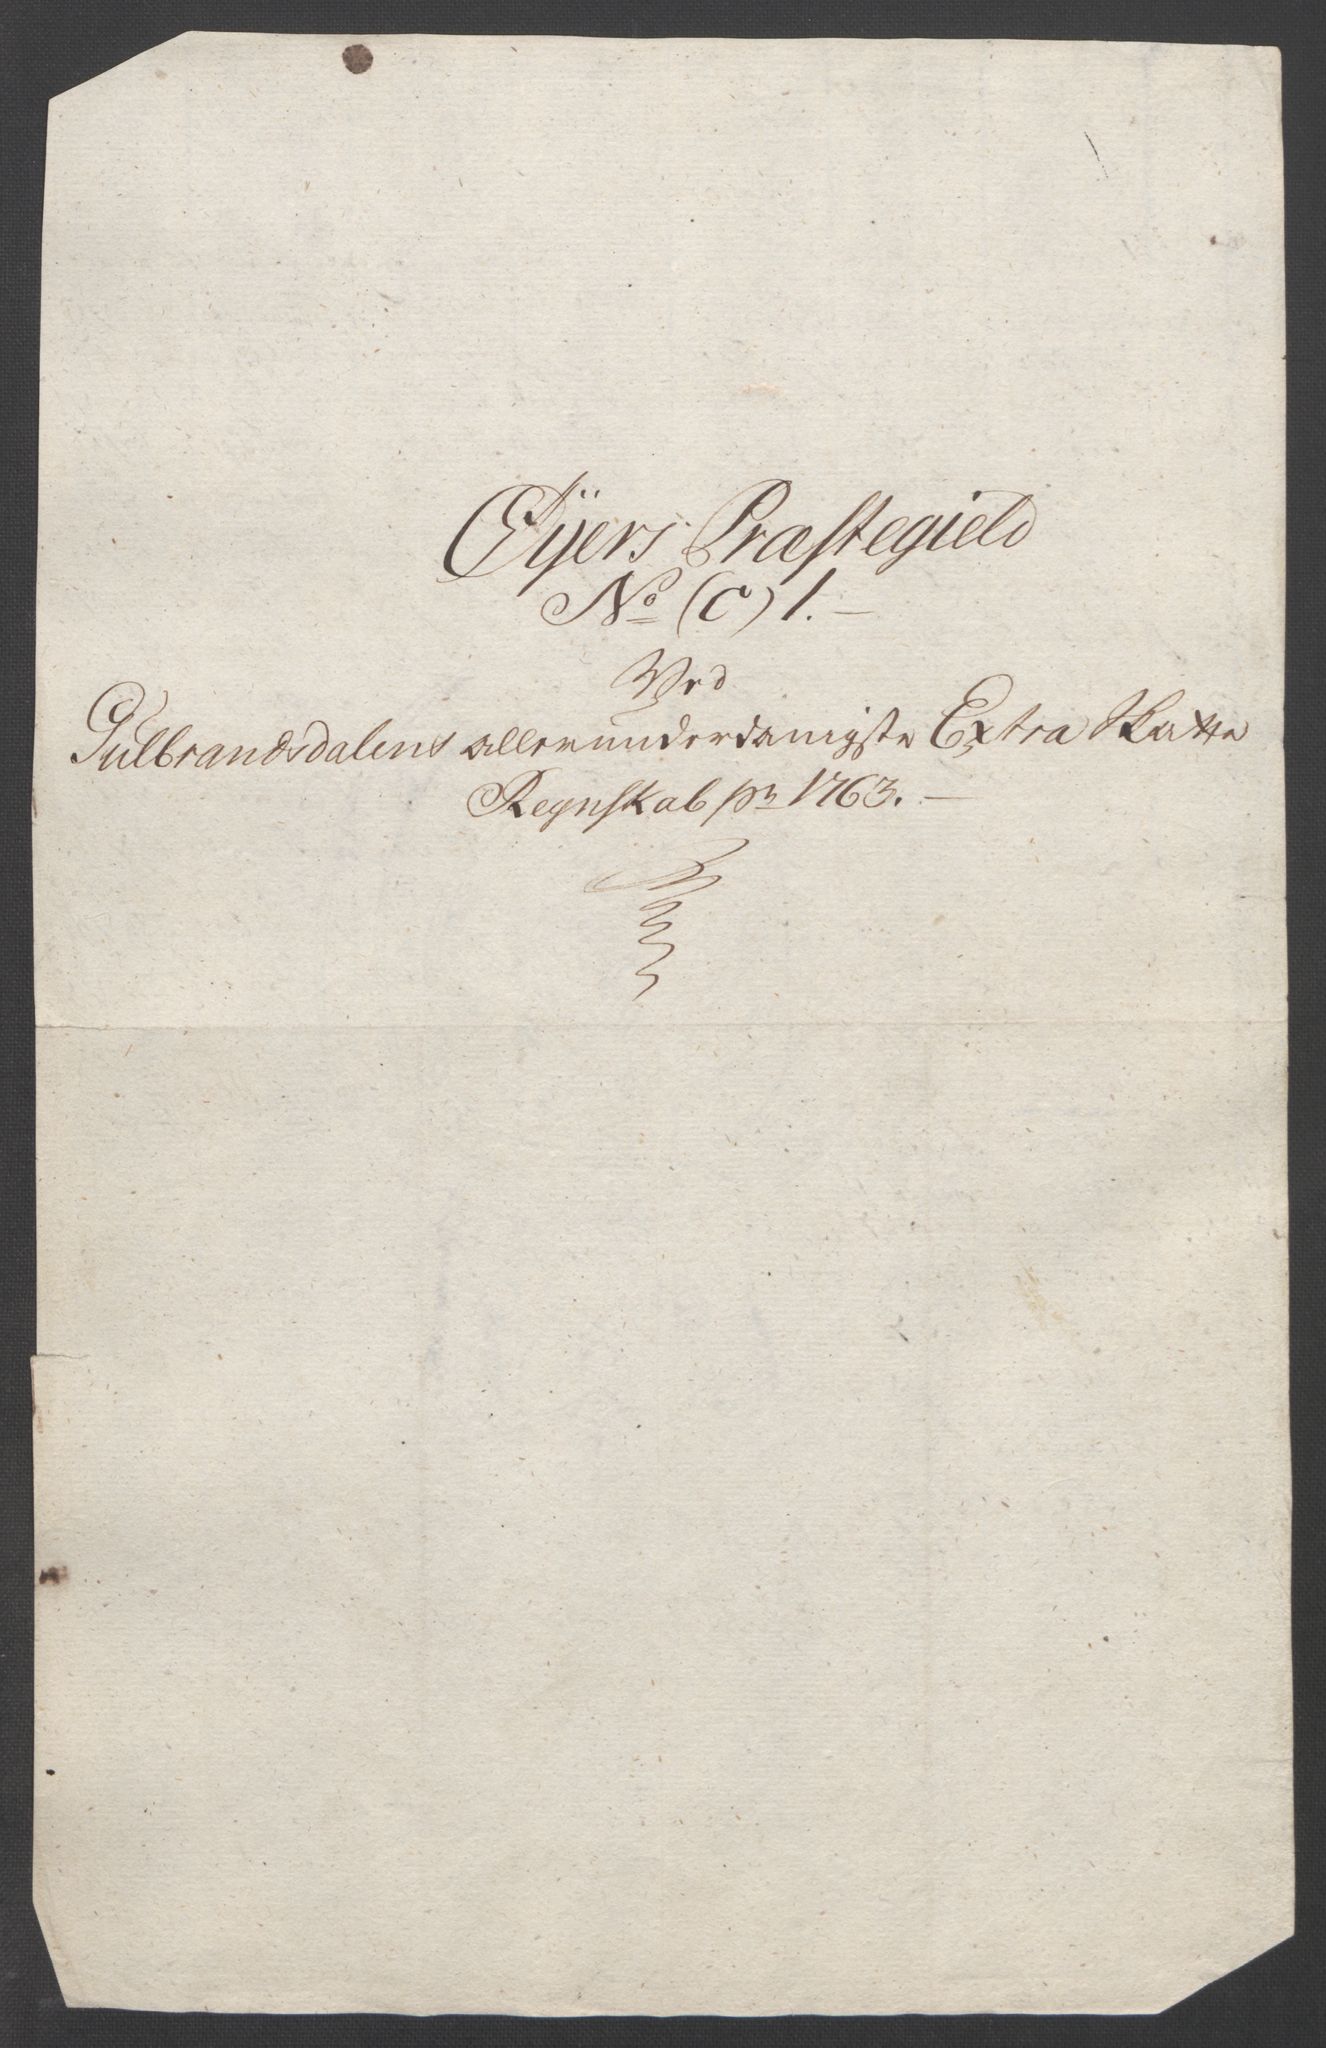 Øÿers Præstegield
No (C) 1. —
Ved
Gulbrandsdalens allerunderdanigste Extra Skatte
Regnskab pr 1763. —